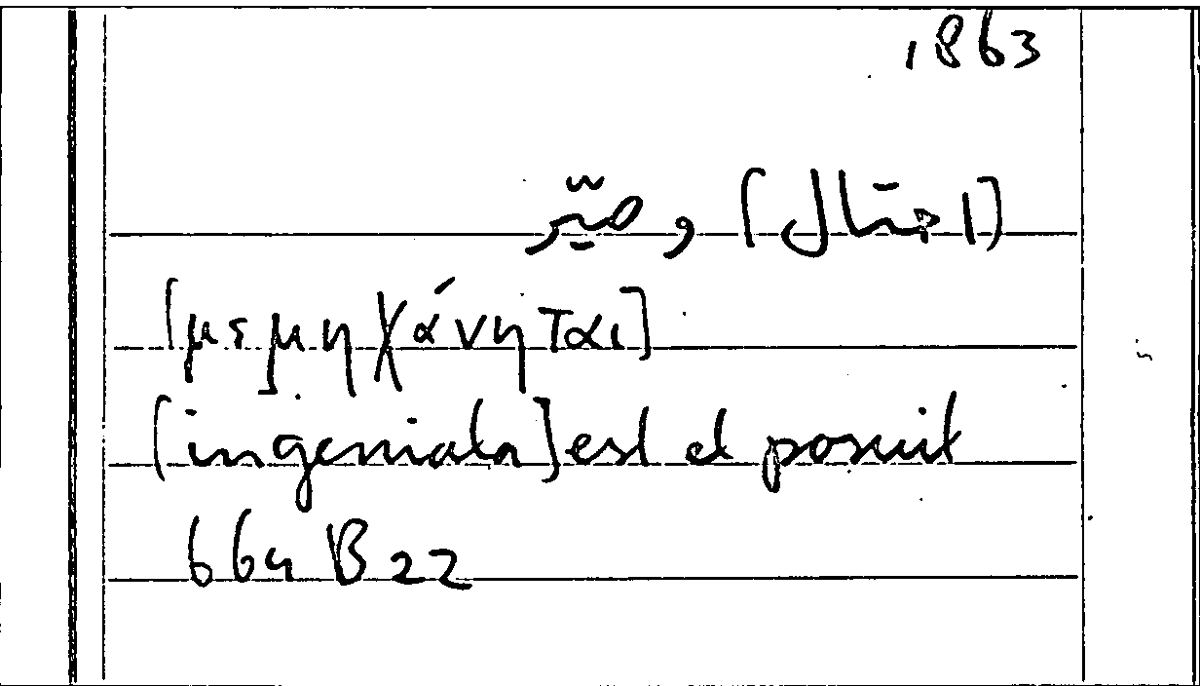 1863
[احتال] وصيّر
[μεμηχάνηται]
[ingeniata] est et posuit
664 B 22